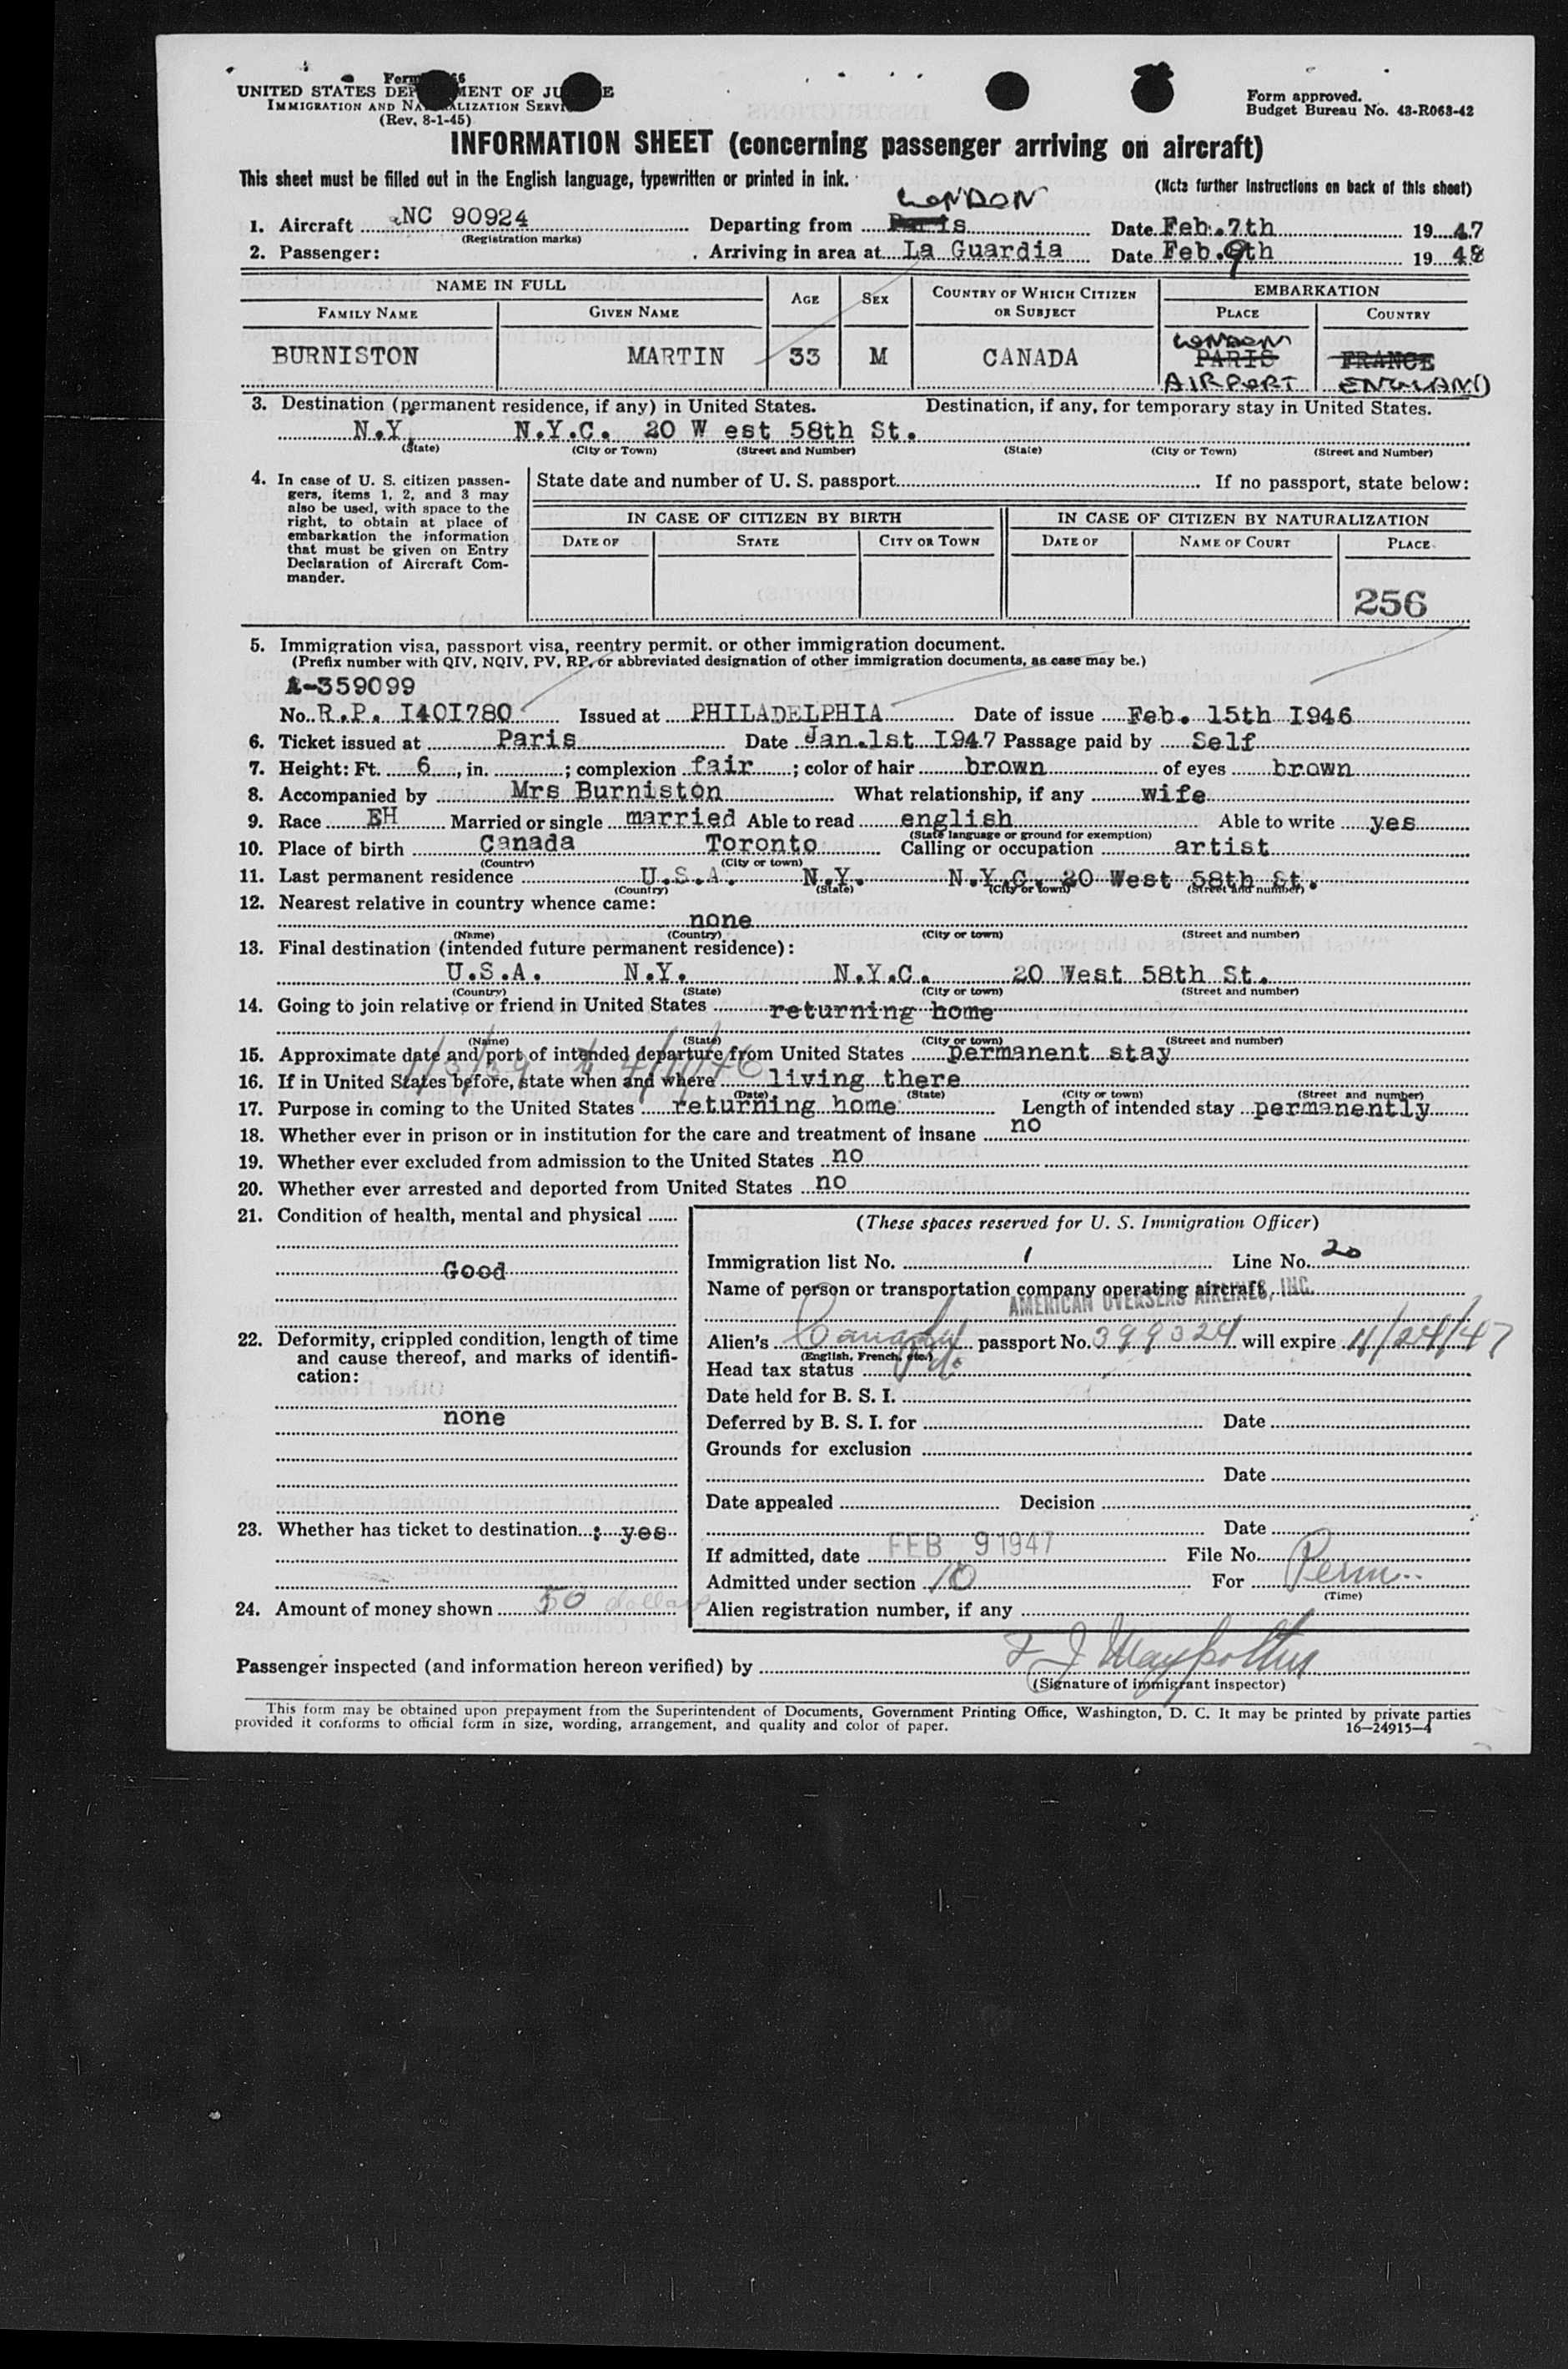 Form
UNITED STATES DEP MENT OF JU E
IMMIGRATION AND NA ALIZATION SERVI
(Rev. 8-1-45)
Form approved.
Budget Bureau No. 43-R063-42
INFORMATION SHEET (concerning passenger arriving on aircraft)
This sheet must be filled out in the English language, typewritten or printed in ink.
(Note further instructions on back of this sheet)
LONDON
1. Aircraft NC 90924 Departing from Paris Date Feb. 7th 1947
(Registration marks)
2. Passenger: Arriving in area at La Guardia Date Feb. 9th 1948
NAME IN FULL AGE SEX COUNTRY OF WHICH CITIZEN OR SUBJECT EMBARKATION
FAMILY NAME GIVEN NAME PLACE COUNTRY
LONDON
BURNISTON MARTIN 33 M CANADA PARIS FRANCE
AIRPORT ENGLAND
3. Destination (permanent residence, if any) in United States. Destination, if any, for temporary stay in United States.
N.Y. N.Y.C. 20 W est 58th St.
(State) (City or Town) (Street and Number) (State) (City or Town) (Street and Number)
4. In case of U. S. citizen passengers, items 1, 2, and 3 may also be used, with space to the right, to obtain at place of embarkation the information that must be given on Entry Declaration of Aircraft Commander.
State date and number of U. S. passport If no passport, state below:
IN CASE OF CITIZEN BY BIRTH IN CASE OF CITIZEN BY NATURALIZATION
DATE OF STATE CITY OR TOWN DATE OF NAME OF COURT PLACE
256
5. Immigration visa, passport visa, reentry permit, or other immigration document.
(Prefix number with QIV, NQIV, PV, RP, or abbreviated designation of other immigration documents, as case may be.)
A-359099
No. R.P. I40I780 Issued at PHILADELPHIA Date of issue Feb. 15th I946
6. Ticket issued at Paris Date Jan.1st I947 Passage paid by Self
7. Height: Ft. 6, in. ; complexion fair; color of hair brown of eyes brown
8. Accompanied by Mrs Burniston What relationship, if any wife
9. Race EH Married or single married Able to read english Able to write yes
(State language or ground for exemption)
10. Place of birth Canada Toronto Calling or occupation artist
(Country) (City or town)
11. Last permanent residence U.S.A. N.Y. N.Y.C. 20 West 58th St.
(Country) (State) (City or town) (Street and number)
12. Nearest relative in country whence came:
none
(Name) (Country) (City or town) (Street and number)
13. Final destination (intended future permanent residence):
U.S.A. N.Y. N.Y.C. 20 West 58th St.
(Country) (State) (City or town) (Street and number)
14. Going to join relative or friend in United States returning home
(Name) (State) (City or town) (Street and number)
15. Approximate date and port of intended departure from United States permanent stay
16. If in United States before, state when and where living there
(Date) (State) (City or town) (Street and number)
17. Purpose in coming to the United States returning home Length of intended stay permanently
18. Whether ever in prison or in institution for the care and treatment of insane no
19. Whether ever excluded from admission to the United States no
20. Whether ever arrested and deported from United States no
21. Condition of health, mental and physical
Good
22. Deformity, crippled condition, length of time and cause thereof, and marks of identification:
none
23. Whether has ticket to destination : yes
24. Amount of money shown 50 dollars
(These spaces reserved for U. S. Immigration Officer)
Immigration list No. 1 Line No. 20
Name of person or transportation company operating aircraft
AMERICAN OVERSEAS AIRLINES, INC.
Alien's passport No. 399324 will expire 4/24/47
(English, French, etc.)
Head tax status
Date held for B. S. I.
Deferred by B. S. I. for Date
Grounds for exclusion
Date
Date appealed Decision
Date
If admitted, date FEB 9 1947 File No.
Admitted under section 10 For Perm.
(Time)
Alien registration number, if any
Passenger inspected (and information hereon verified) by
(Signature of immigrant inspector)
This form may be obtained upon prepayment from the Superintendent of Documents, Government Printing Office, Washington, D. C. It may be printed by private parties
provided it conforms to official form in size, wording, arrangement, and quality and color of paper.
16—24915-4